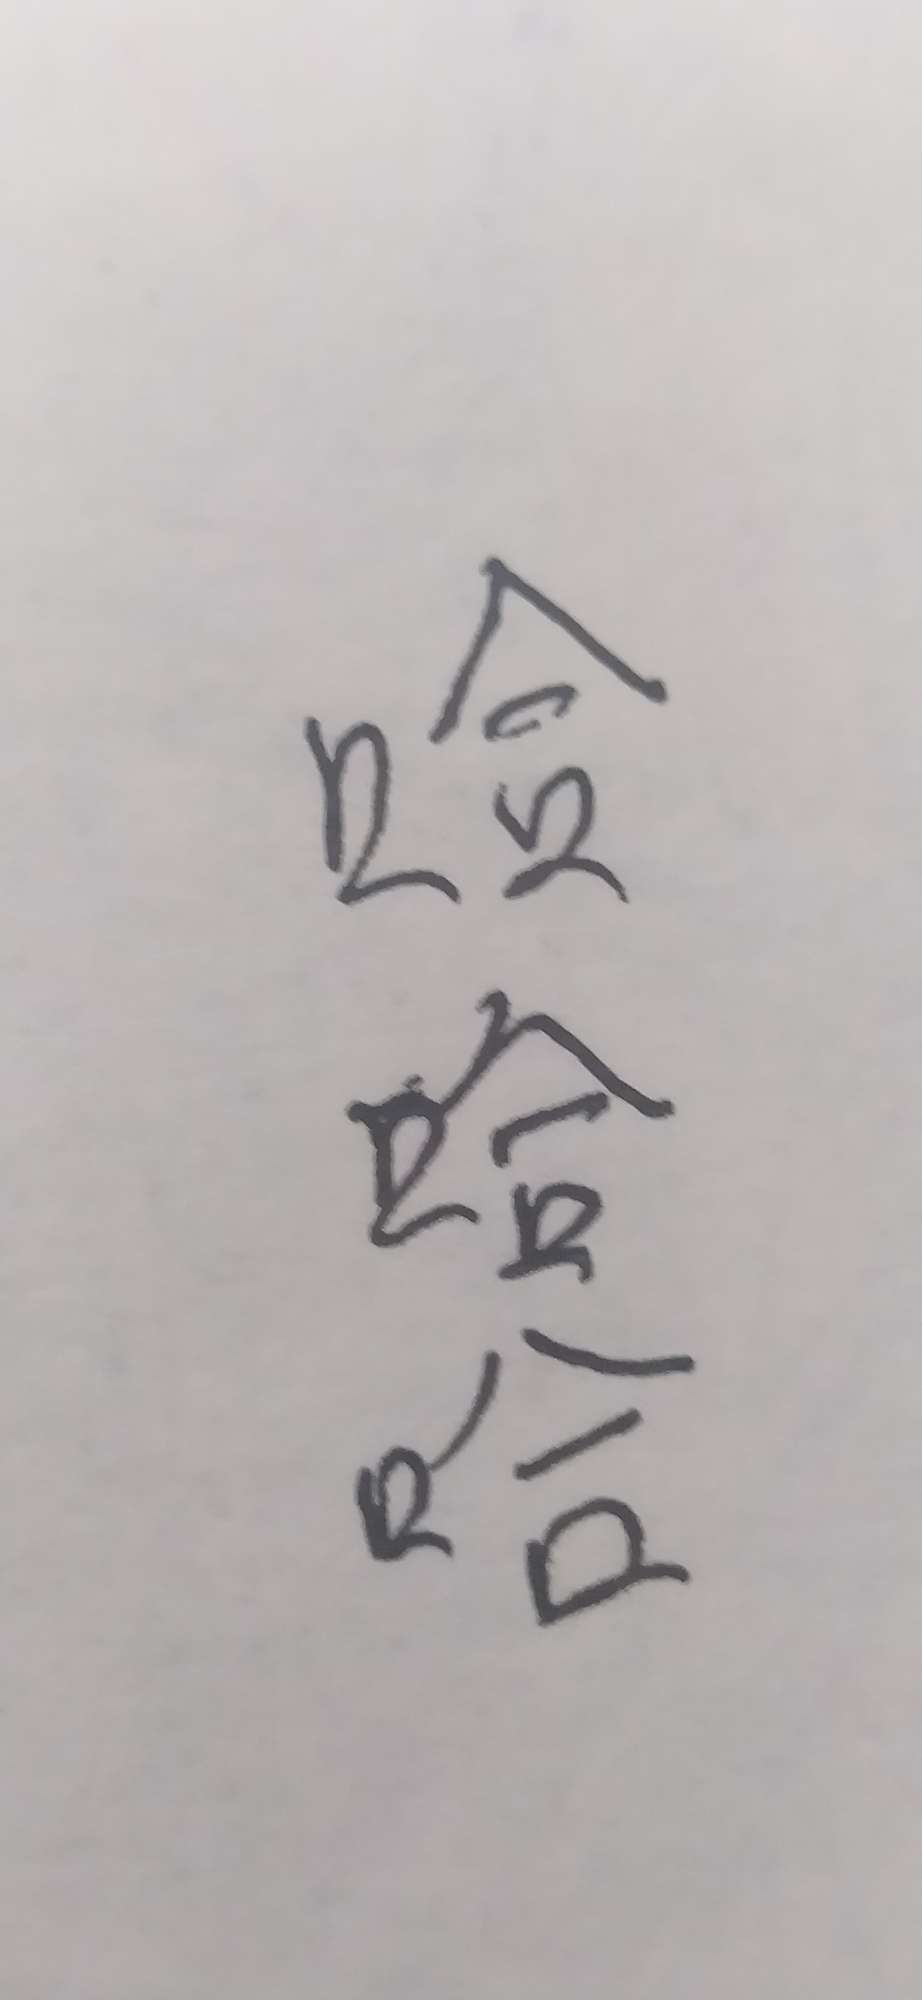 哈哈哈